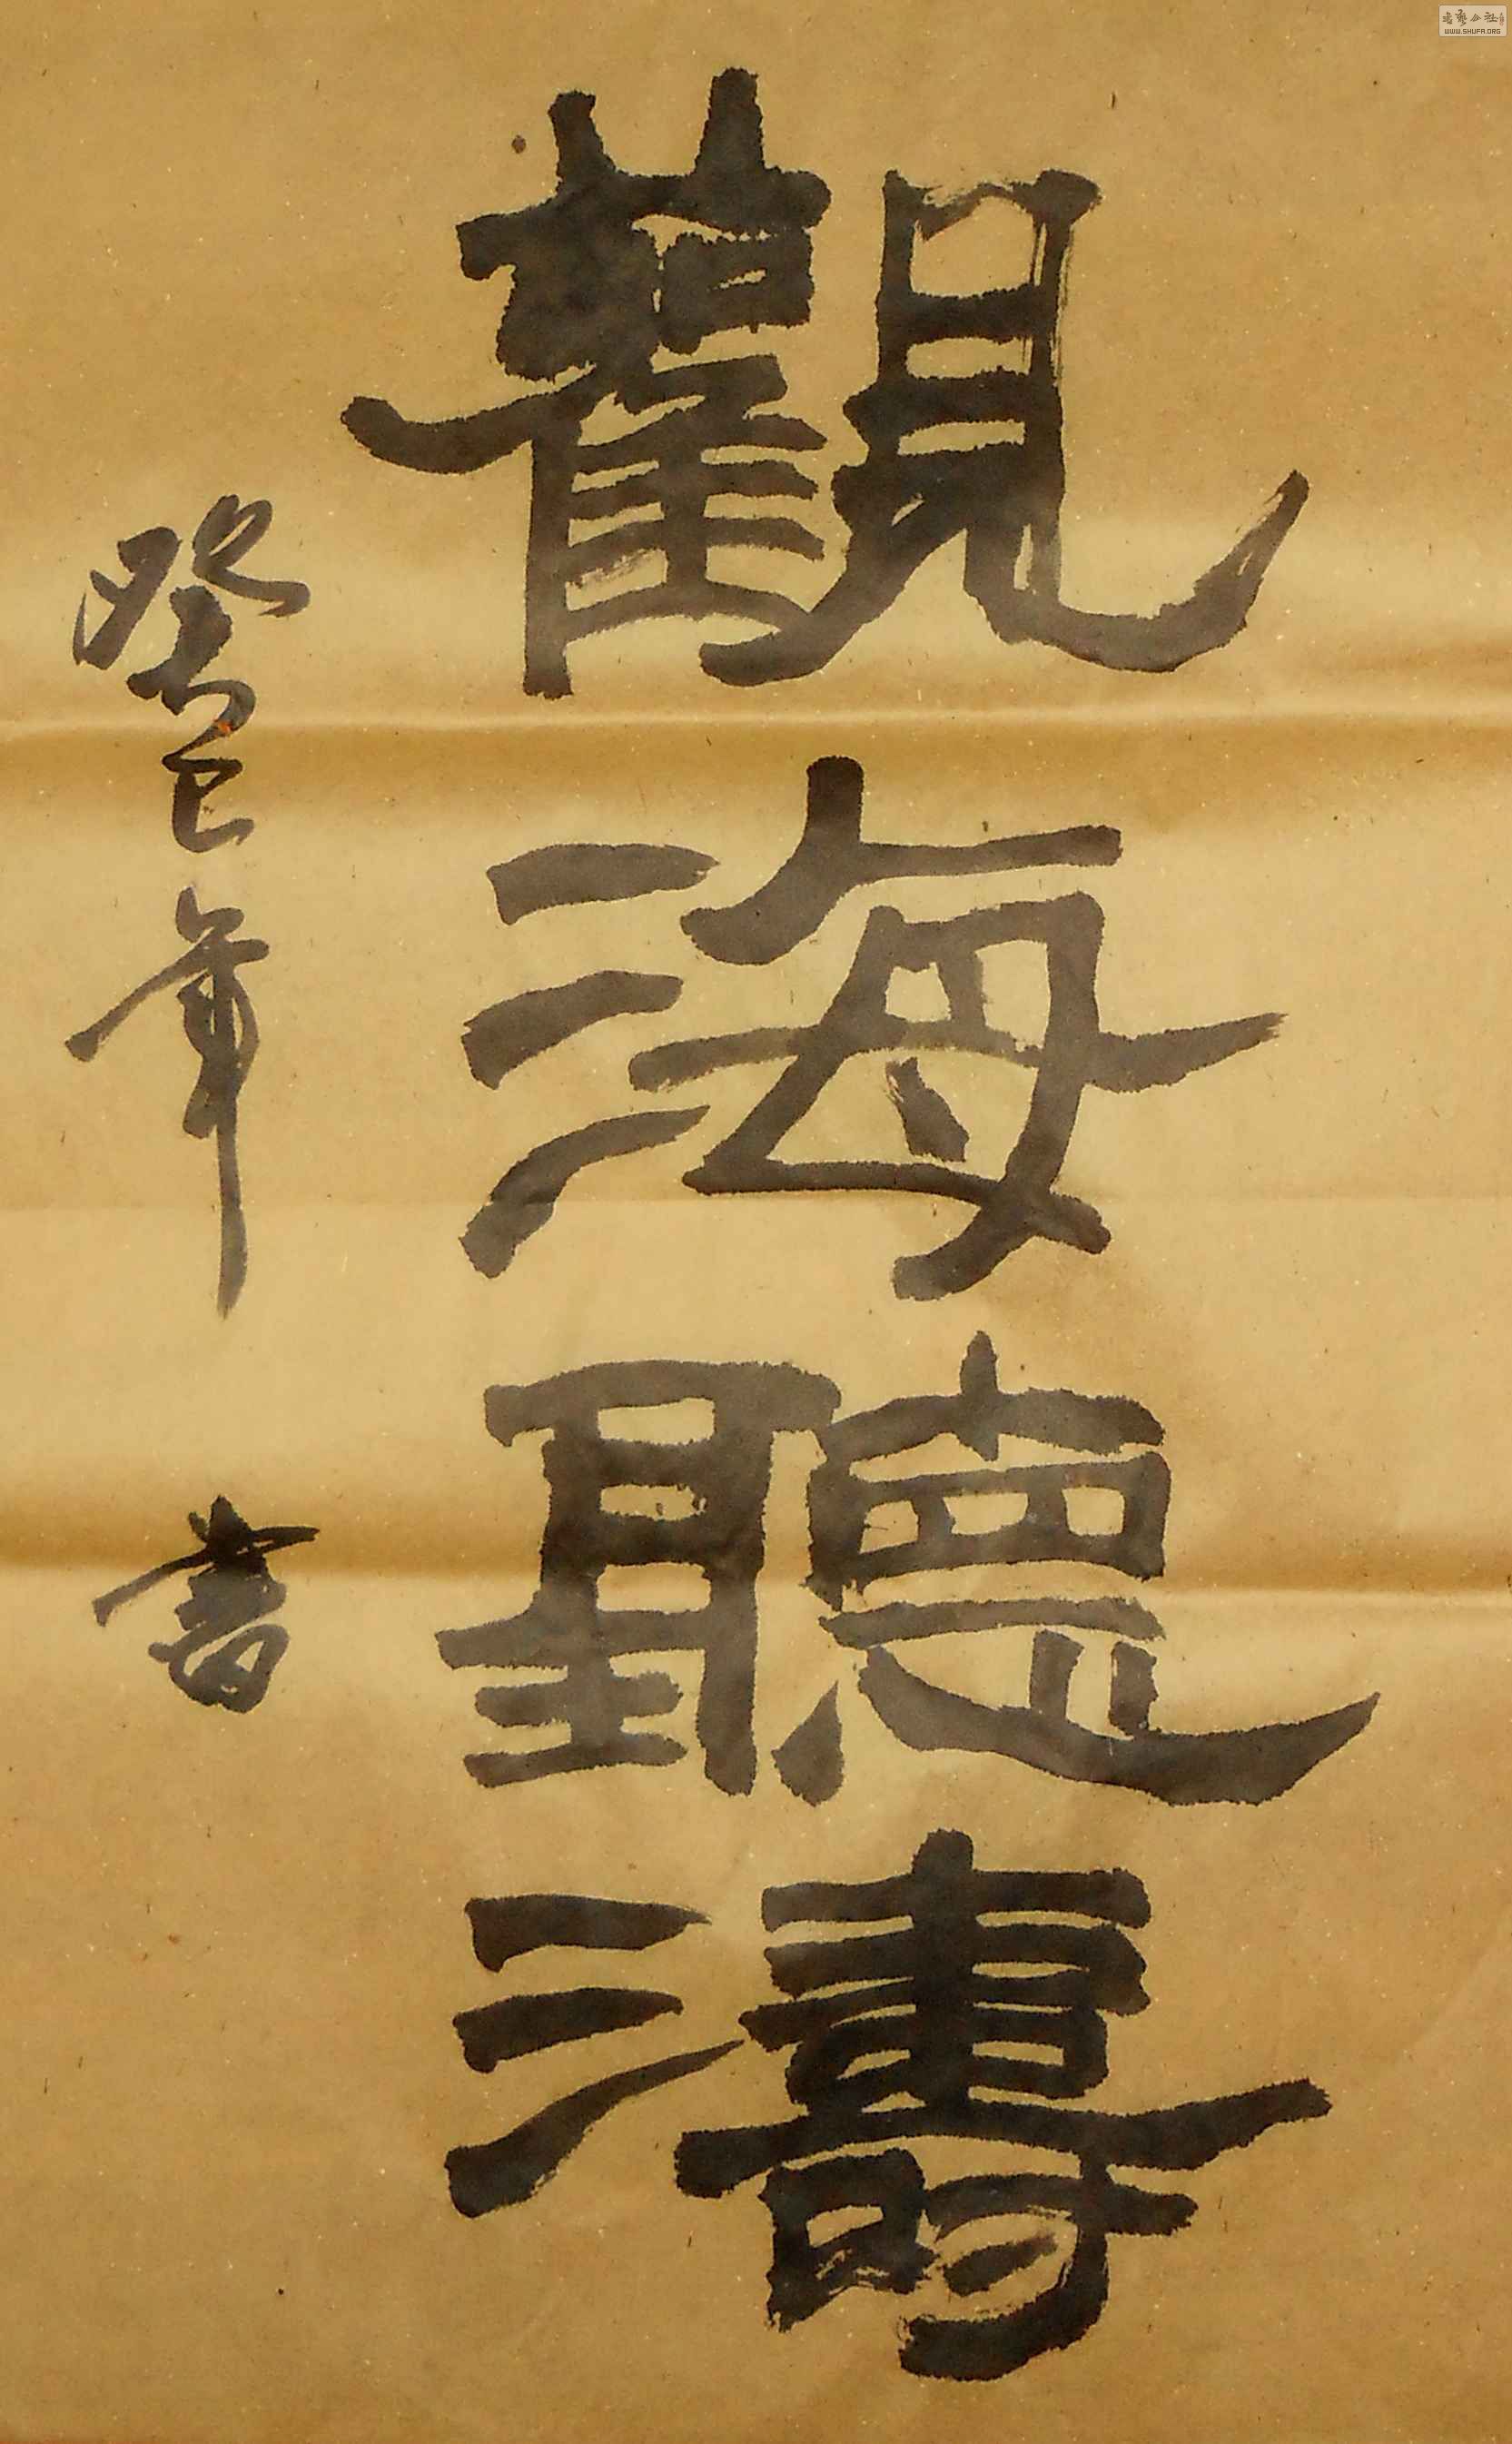 觀海聽濤
癸巳年 書
书艺公社
WWW.SHUFA.ORG